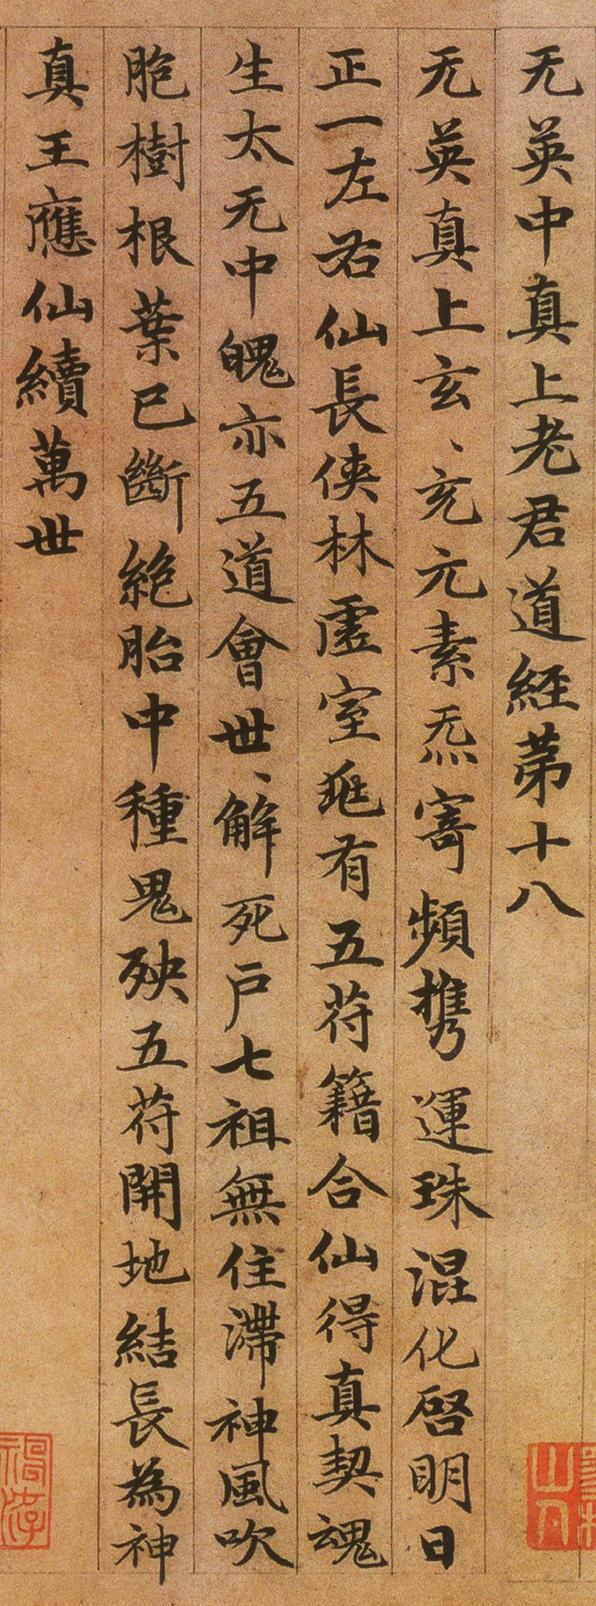 无英中真上老君道經苐十八
无英真上玄〻充元素炁寄頻攜運珠混化啓明日
正一左右仙長俠林虛室延有五苻籍合仙得真契魂
生太无中魄亦五道會世〻解死戶七祖無住滯神風吹
胞樹根葉已斷絶胎中種鬼殃五苻開地結長為神
真王應仙續萬世